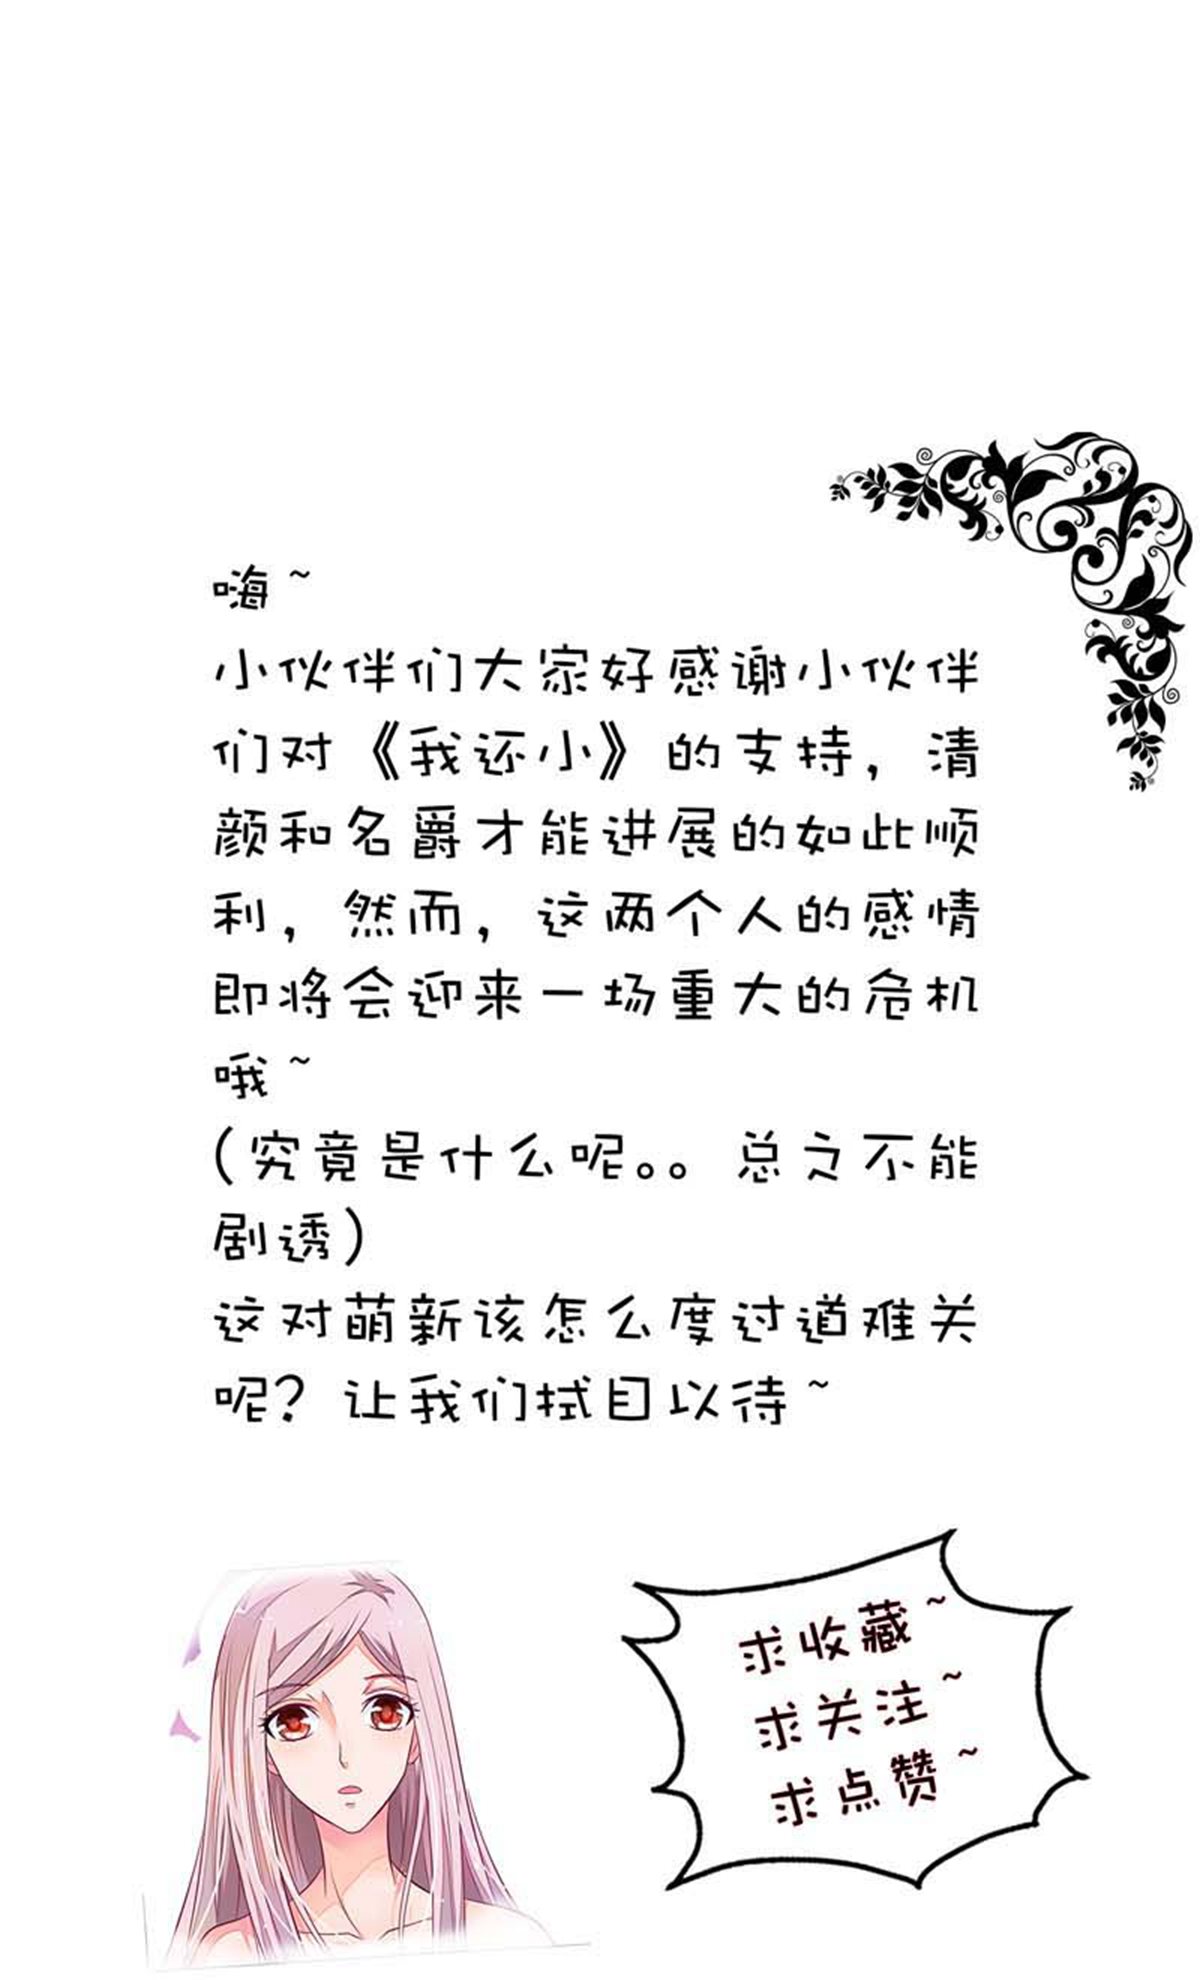 嗨~
小伙伴们大家好感谢小伙伴
们对《我还小》的支持，清
颜和名爵才能进展的如此顺
利，然而，这两个人的感情
即将会迎来一场重大的危机
哦~
(究竟是什么呢。。总之不能
剧透)
这对萌新该怎么度过道难关
呢？让我们拭目以待~
求收藏~
求关注~
求点赞~